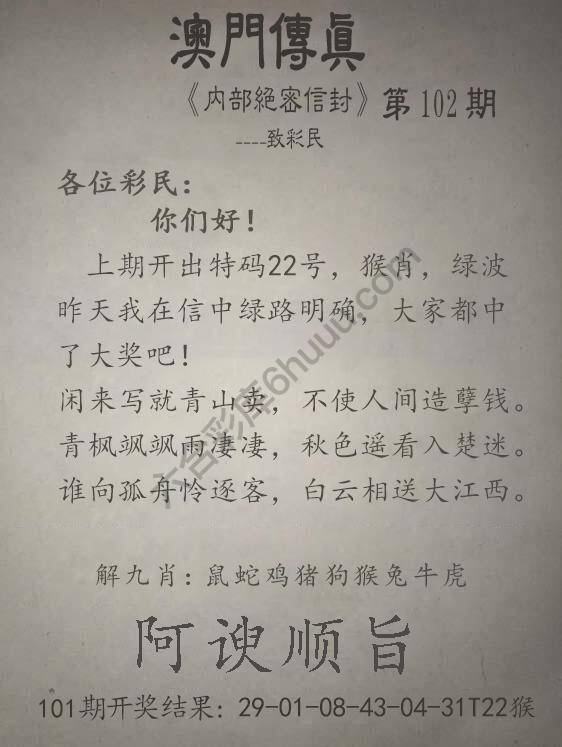 澳門傳眞
《内部絕密信封》第102期
----致彩民
各位彩民：
你们好！
上期开出特码22号，猴肖，绿波
昨天我在信中绿路明确，大家都中
了大奖吧！
闲来写就青山卖，不使人间造孽钱。
青枫飒飒雨凄凄，秋色遥看入楚迷。
谁向孤舟怜逐客，白云相送大江西。
六合彩库6huuu.com
解九肖：鼠蛇鸡猪狗猴兔牛虎
阿谀顺旨
101期开奖结果：29-01-08-43-04-31T22猴